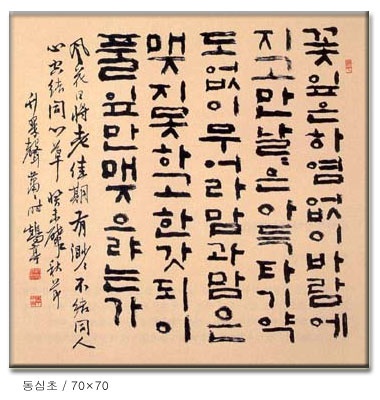 꽃잎은하염없이바람에
지고만날은아득타기약
도없이무어라맘과맘은
맺지못하고한갓되이
풀잎만맺으랴는가
風花日將老佳期有渺々不結同人
心空結同心草 癸未 秋節
聲
동심초 / 70×70